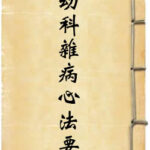 幼科雜病心法要